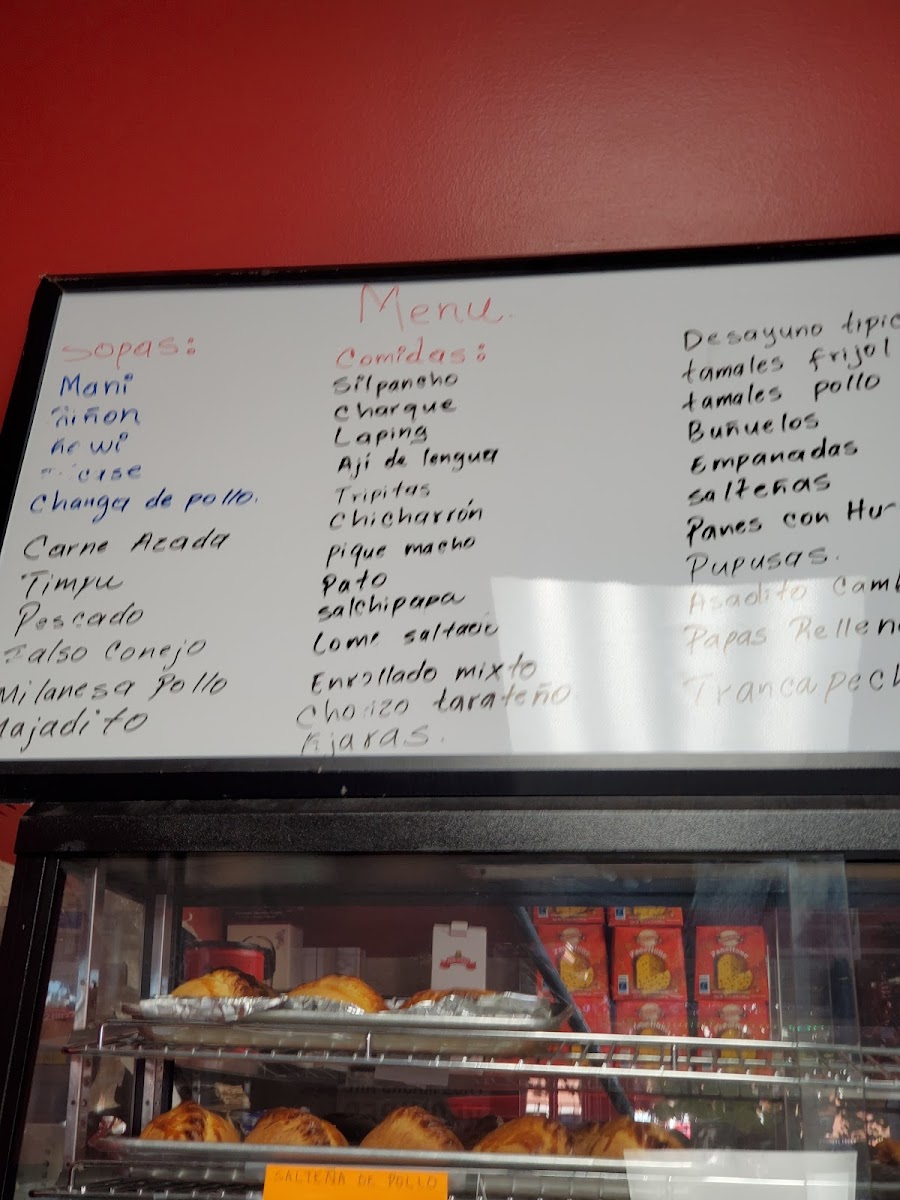 Menu.
Sopas:
Mani
Riñon
Kawi
case
Changa de pollo.
Carne Azada
Timpu
Pescado
Falso Conejo
Milanesa Pollo
Majadito
Comidas:
Silpancho
Charque
Laping
Ají de lengua
Tripitas
Chicharrón
Pique macho
Pato
Salchipapa
Lomo saltado
Enrollado mixto
Chorizo tarateño
Kjaras.
Desayuno tipic
tamales frijol
tamales pollo
Buñuelos
Empanadas
Salteñas
Panes con Hu
Pupusas.
Asadito Camb
Papas Rellen
Trancapech
SALTEÑA DE POLLO